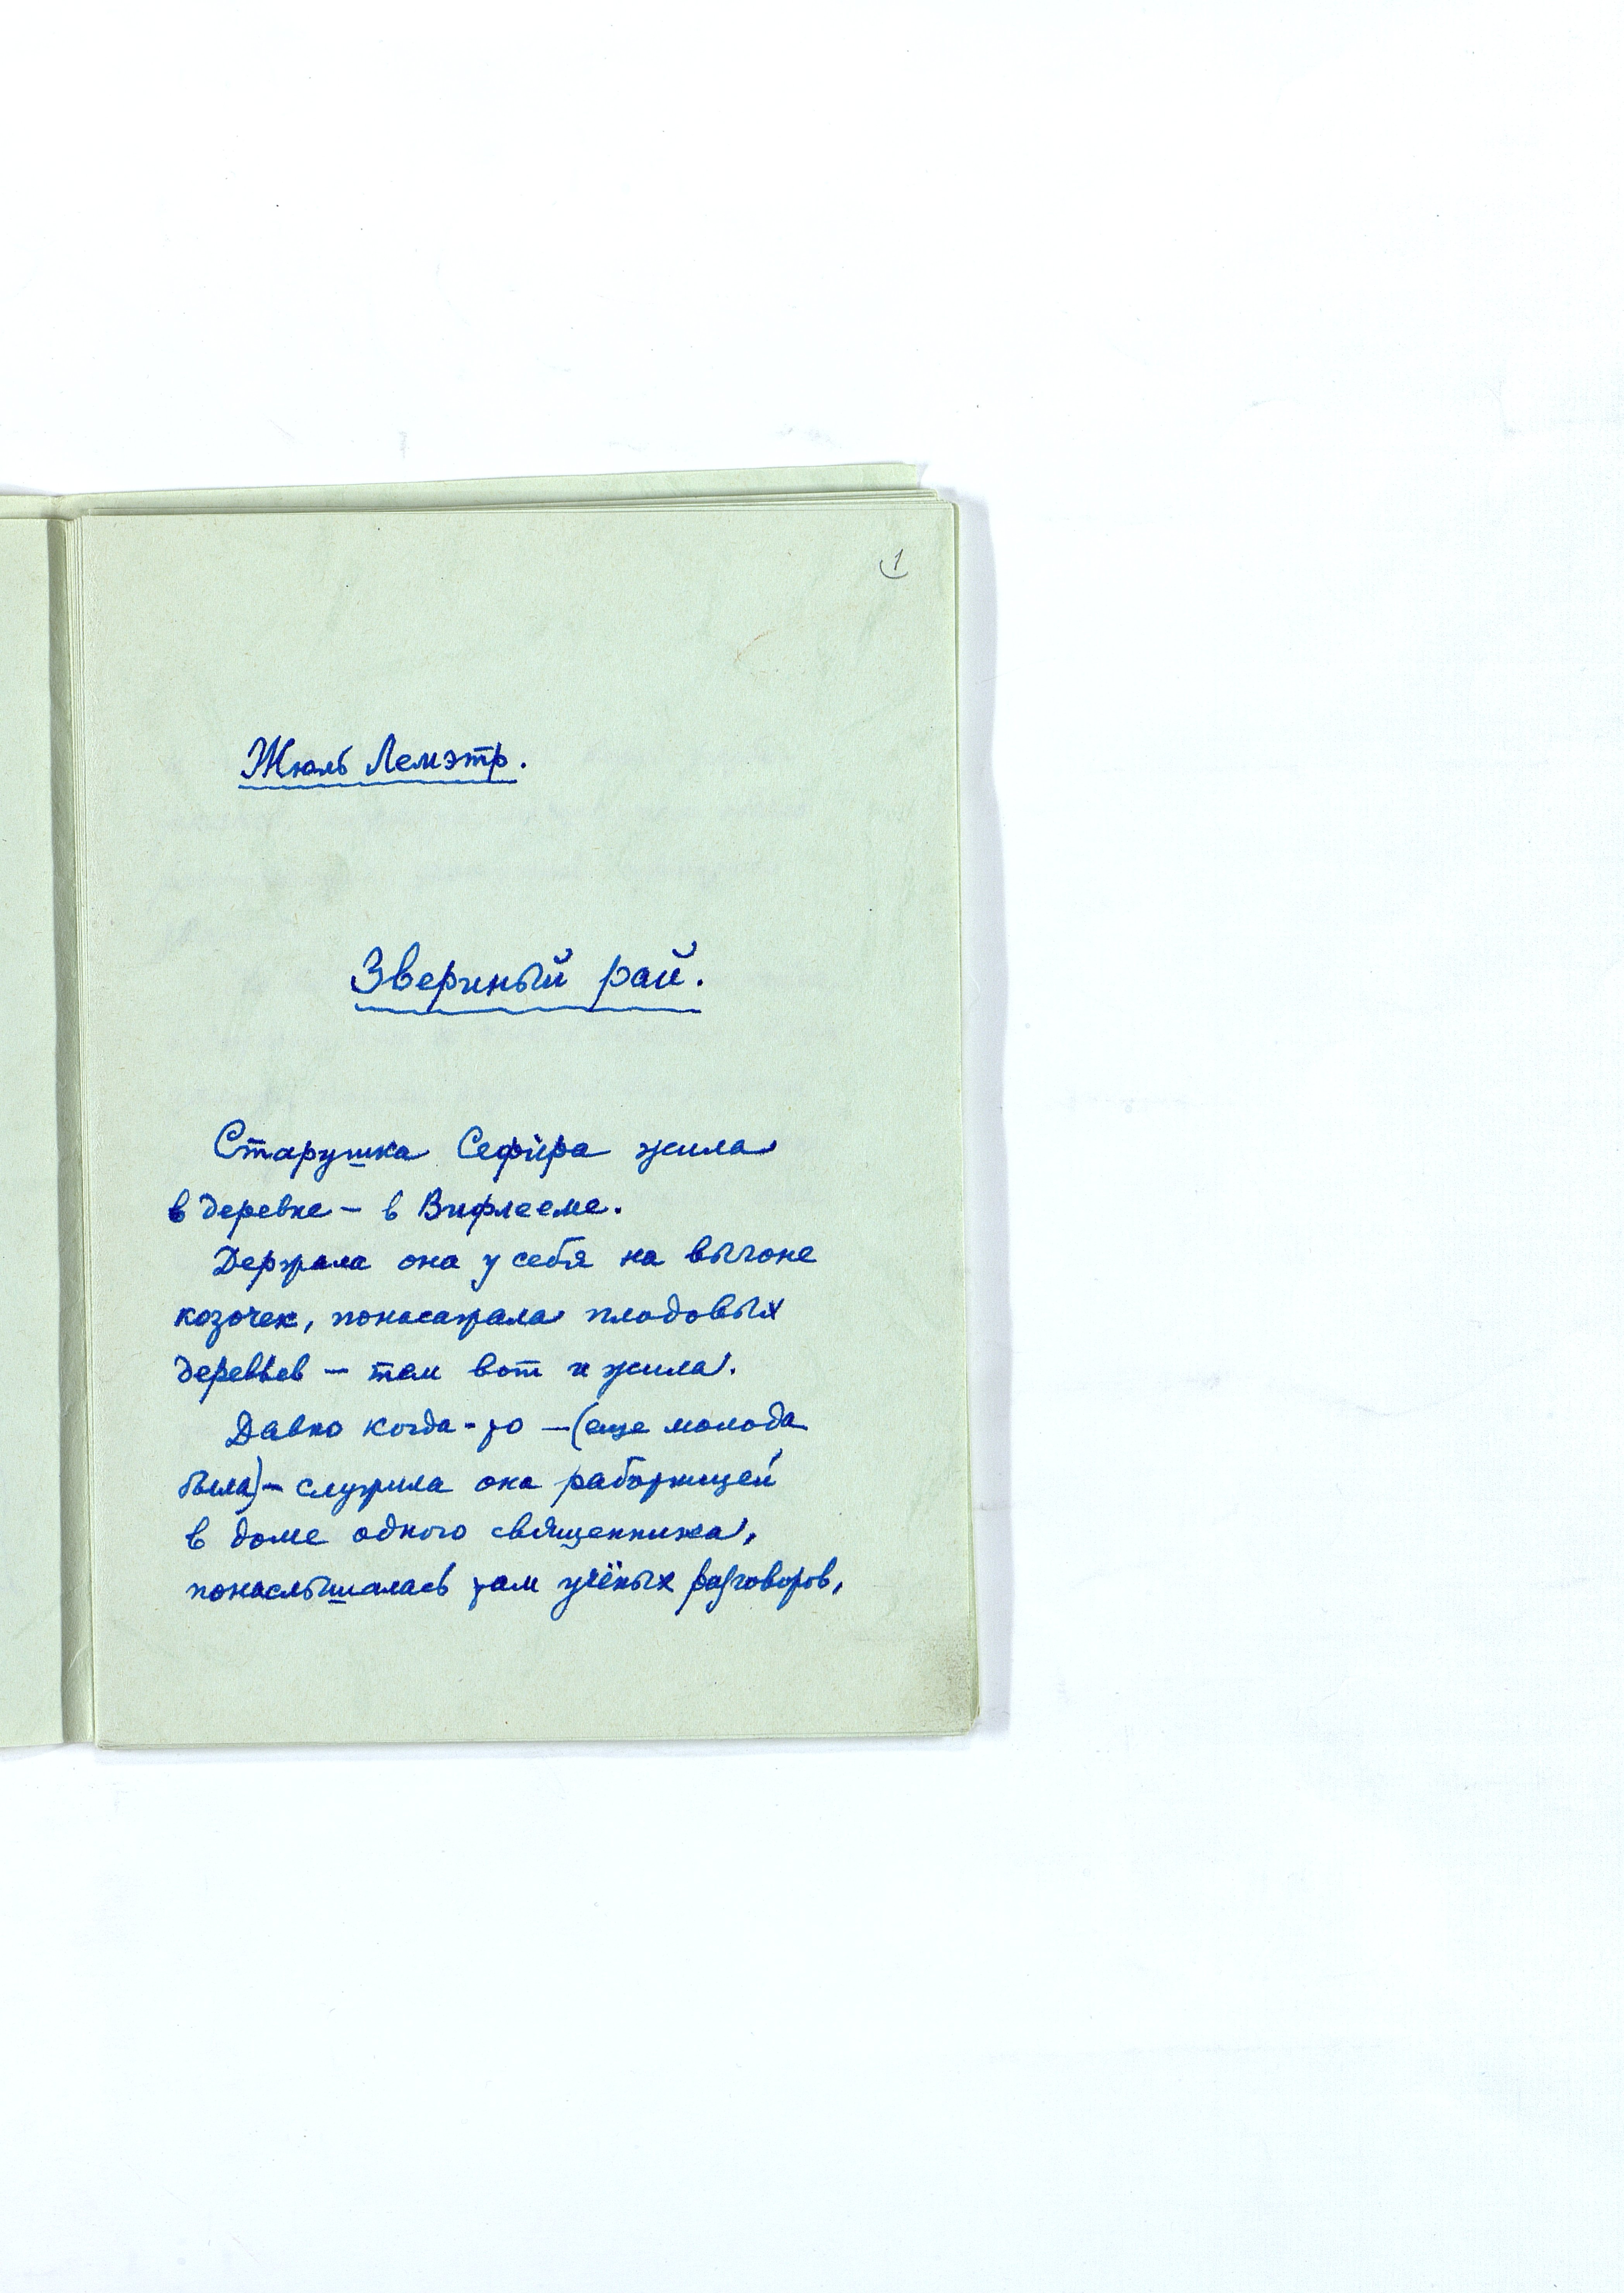 1
Жюль Лемэтр.
Звериный рай.
Старушка Сефира жила
в деревне – в Вифлееме.
Держала она у себя на выгоне
козочек, понасажала плодовых
деревьев – там вот и жила.
Давно когда-то – (еще молода
была) – служила она работницей
в доме одного священника,
понаслышалась там учёных разговоров,